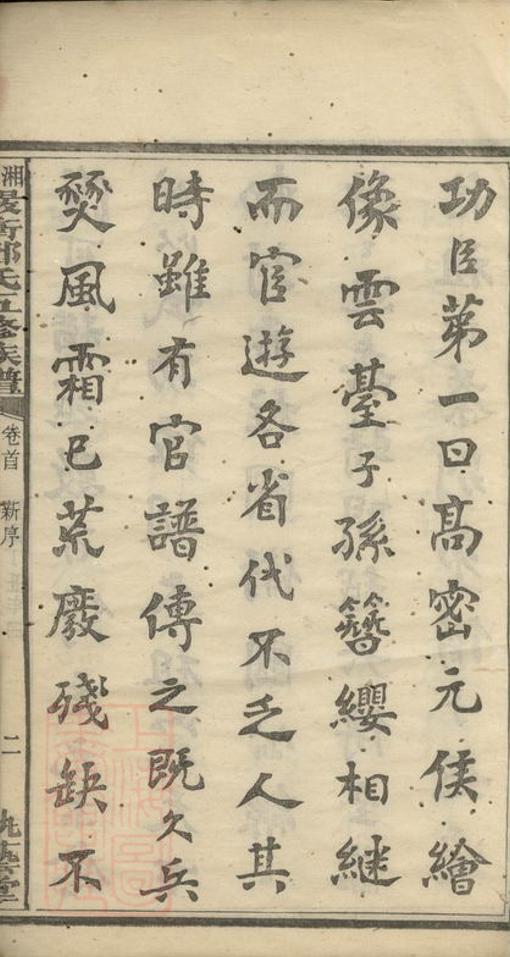 功臣第一曰高密元侯繪
像雲臺子孫簪纓相繼
而官遊各省代不乏人其
時雖有官譜傳之既久兵
燹風霜已荒廢殘缺不
湘
氏五修族譜
卷首
新序
二